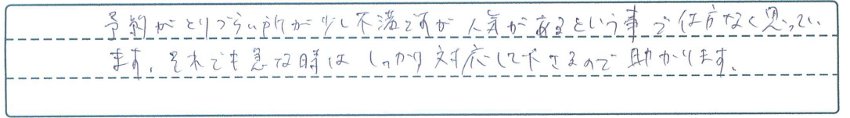 予約がとりづらい所が少し不満ですが人気があるという事で仕方なく思ってい
ます。それでも急な時はしっかり対応して下さるので助かります。